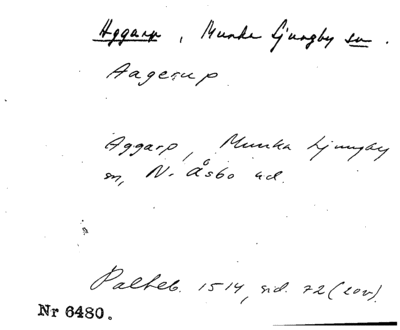 Aggarp, Munka Ljungby sn.
Aagerup
Aggarp, Munka Ljungby
sn, N. Åsbo hd.
Palteb. 1514, sid. 72 (cov).
Nr 6480.